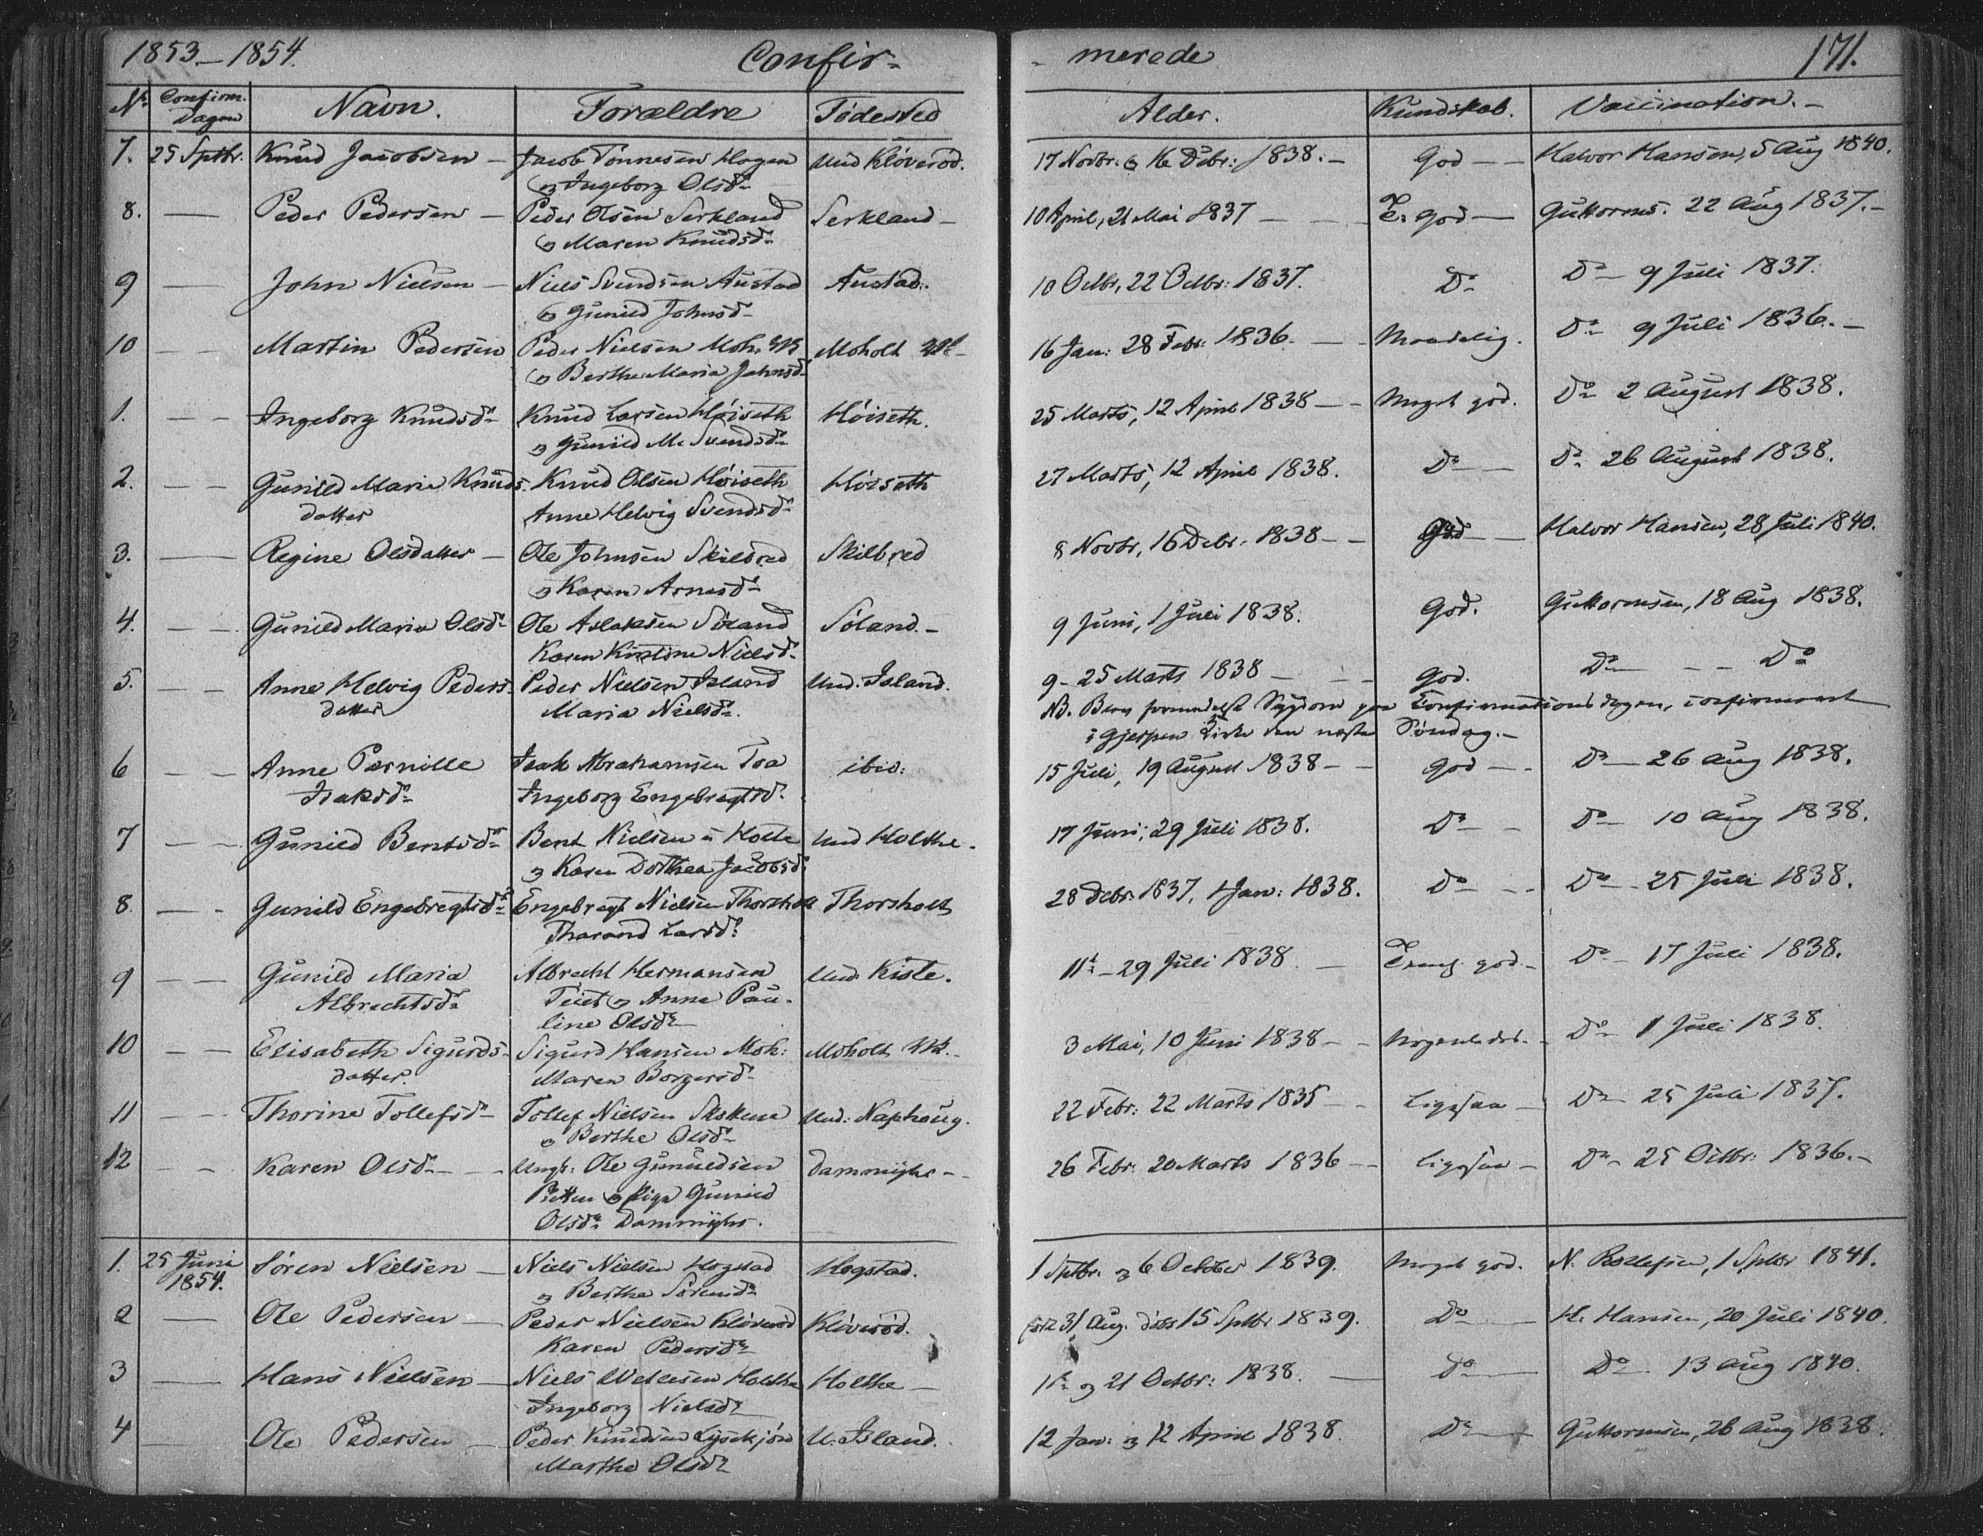 1853 – 1854. Confir- - merede 171.
No Confirm. Dagen Navn. Forældre Fødested Alder. Kundskab. Vaccination. –
7. 25 Septbr. Knud Jacobsen – Jacob Tønnesen Hagen Und Kløverød. 17 Novbr: & 16 Debr: 1838. – God – – Halvor Hansen, 5 Aug 1840.
og Ingeborg Olsdr
8. — Peder Pedersen – Peder Olsen Serkland Serkland – 10 April, 21 Mai 1837 – – T. god – Guttorms. 22 Aug 1837. –
og Maren Knudsdr
9 — John Nielsen – Niels Svendsen Austad Austad. 10 Octbr, 22 Octbr: 1837. Do Do – 9 Juli 1837.
og Gunild Johnsd.
10 – – Martin Pedersen Peder Nielsen Moh. Moholt 16 Jan: 28 Febr: 1836. – – Maadelig. Do 9 Juli 1836. –
og Berthe Maria Jahnsd.
1. – – Ingeborg Knudsdr Knud Larsen Høiseth Høiseth. 25 Marts, 12 April 1838 – – Meget god. Do 2 August 1838.
og Gunild M. Svendsdr
2. – – Gunild Maria Knuds Knud Olsen Høiseth Høiseth 27 Marts, 12 April 1838. Do – Do 26 August 1838.
datter Anne Helvig Svendsdr
3. — Regine Olsdatter – Ole Johnsen Skilbred Skilbred 8 Novbr, 16 Debr. 1838 – – God – Halvor Hansen, 28 Juli 1840.
og Karen Arnesdr
4. – – Gunild Maria Olsdr Ole Aslaksen Søland Søland. – 9 Juni, 1 Juli 1838. God. Guttormsen, 18 Aug 1838.
Karen Kirstine Nielsdr
5. – – Anne Helvig Peders- Peder Nielsen Island Und. Island. 9 – 25 Marts 1838 – – God. Do – – – Do
datter Maria Nielsdr. NB. Blev formedelst Sygdom paa Confirmationsdagen, confirmeret
i Gjerpen Kirke den næste Søndag. –
6 – – Anne Pernille Isak Abrahamsen Toa ibid: 15 Juli, 19 August 1838 – – God – – Do – 26 Aug 1838.
Isaksdr Ingeborg Engebregtsdr
7 – – Gunild Bentsdr Bent Nielsen Holte Und Holthe. 17 Juni; 29 Juli 1838. Do – – Do – 10 Aug 1838.
og Karen Dorthea Jacobsd
8. – – Gunild Engebregtsdr Engebregt Nielsen Thorsholt Thorsholt 28 Debr. 1837, 1 Jan: 1838. Do – – Do – 25 Juli 1838.
Tharand Larsdr
9 – – Gunild Maria Albrecht Hermansen Und Kiste. 11te – 29 Juli 1838 – Temg. god. – Do – 17 Juli 1838.
Albrechtsdr og Anne Pau-
line Olsdr
10 – – Elisabeth Sigurds- Sigurd Hansen Moh: Moholt 3 Mai, 10 Juni 1838 – – Nogenledes. – Do – 1 Juli 1838.
datter. Maren Borgersdr
11 – – Thorine Tollefsdr – Tollef Nielsen Und: Naphoug. 22 Febr: 22 Marts 1835 – – Ligesaa – Do – 25 Juli 1837.
og Berthe Olsdr
12 – – Karen Olsdr – – Ungk: Ole Gunuldsen 26 Febr: 20 Marts 1836 – – Ligesaa – Do – 25 Octbr: 1836. –
og Pige Gunild
Olsdr
1. 25 Juni 1854. Søren Nielsen – Niels Nielsen Hogstad Hogstad. 1 Sptbr. og 6 October 1839. Meget god. N. Rollefsen, 1 Sptbr 1841.
og Berthe Sørensdr
2 — Ole Pedersen – Peder Nielsen Kløverød Kløverød. født 31 Aug. døbt 15 Sptbr 1839. Do — H. Hansen, 20 Juli 1840.
Karen Pedersdr
3 — Hans Nielsen – Niels Holthe Holthe – 1te og 21 Octbr: 1838. — Do — Do – 13 Aug 1840.
Ingeborg Nielsdr
4 — Ole Pedersen – Peder Knudsen U. Island. 12 Jan: og 12 April 1838. Do – Guttormsen, 26 Aug 1838.
Marthe Olsdr